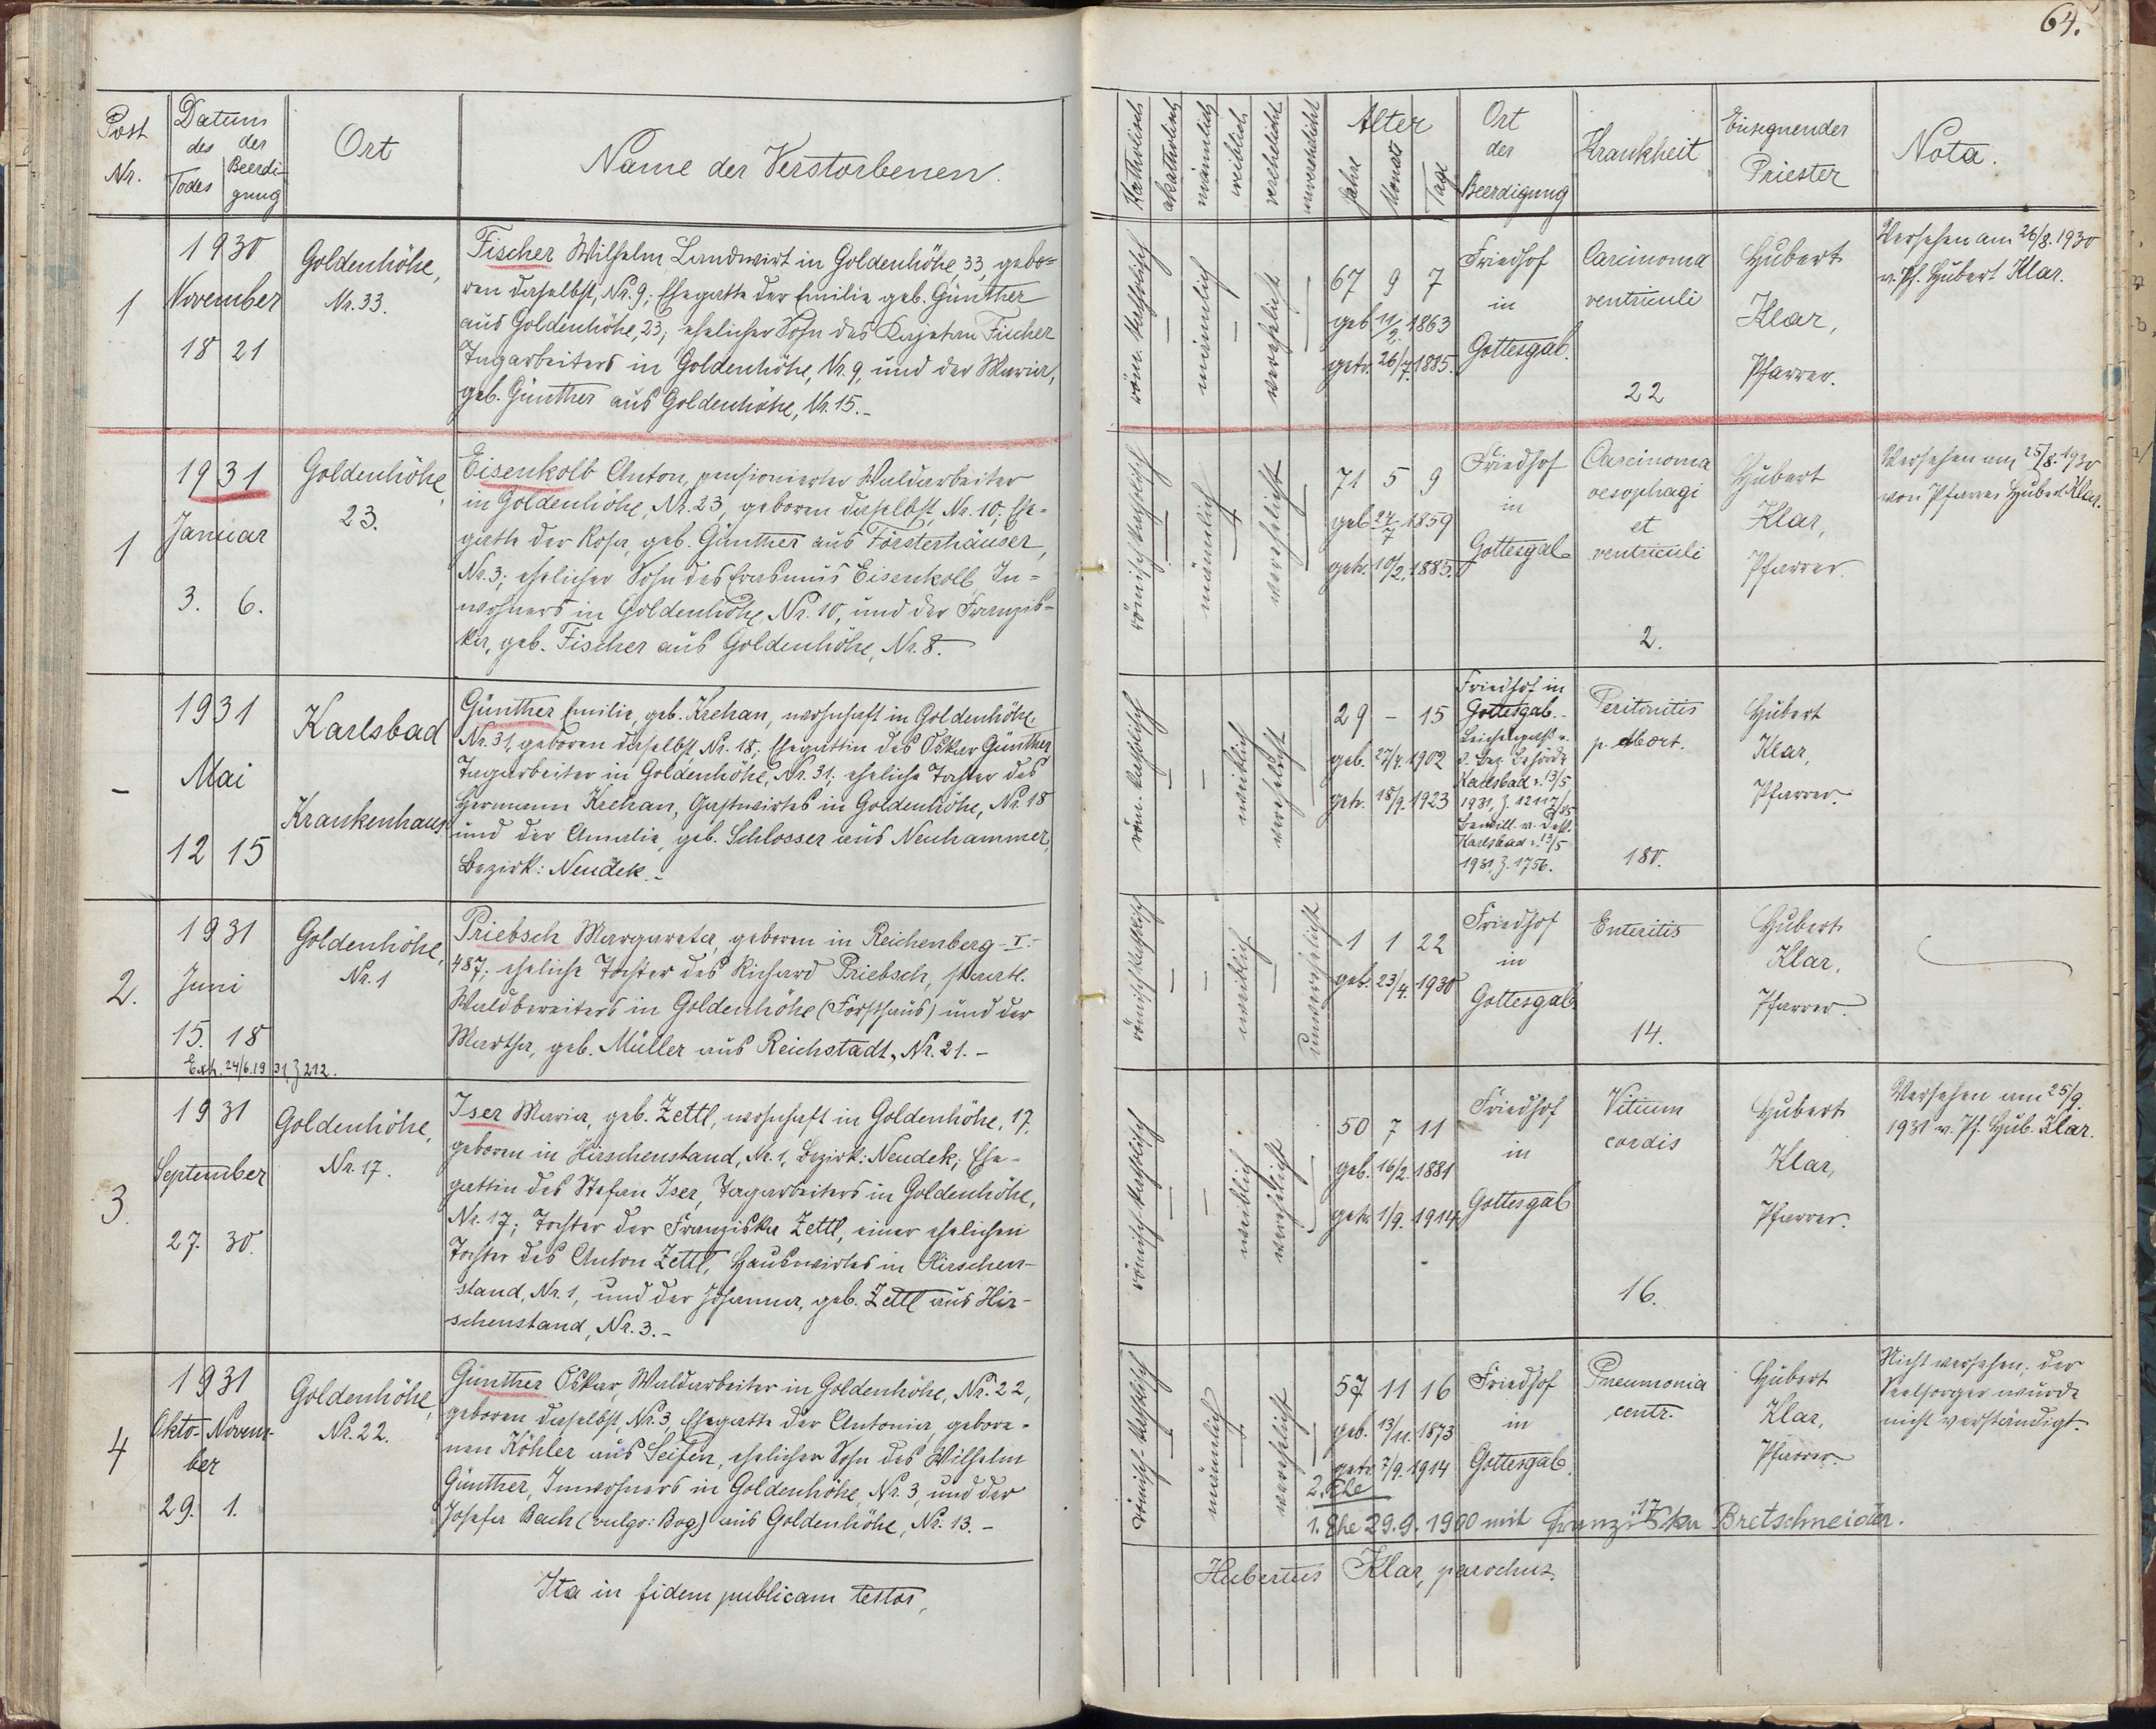 64.
Post Nr.
Datum des Todes der Beerdigung
Ort
Name der Verstorbenen.
Katholisch
akatholisch
männlich
weiblich
verehelicht
unverehelicht
Alter
Jahre Monat Tage
Ort der Beerdigung
Krankheit
Einsegnender Priester
Nota.
1
1930
November
18 21
Goldenhöhe,
Nr. 33.
Fischer Wilhelm Landwirt in Goldenhöhe 33, gebo=
ren daselbst, Nr. 9; Ehegatte der Emilie geb. Günther
aus Goldenhöhe, 23; ehelicher Sohn des Kajetan Fischer
Tagarbeiters in Goldenhöhe, Nr. 9, und der Maria,
geb. Günther aus Goldenhöhe, Nr. 15.-
röm. katholisch
männlich
verehelicht
67 9 7
geb. 11/2. 1863
getr. 26/7. 1885.
Friedhof
in
Gottesgab.
Carcinoma
ventriculi
22
Hubert
Klar,
Pfarrer.
Versehen am 26/8. 1930
v. Pf. Hubert Klar.
1
1931
Januar
3. 6.
Goldenhöhe,
23.
Eisenkolb Anton, pensionierter Waldarbeiter
in Goldenhöhe, Nr. 23, geboren daselbst, Nr. 10; Ehe-
gatte der Rosa, geb. Günther aus Försterhäuser,
Nr. 3; ehelicher Sohn des Erasmus Eisenkolb In=
wohners in Goldenhöhe, Nr. 10, und der Franzis-
ka, geb. Fischer aus Goldenhöhe, Nr. 8.-
römisch katholisch
männlich
verehelicht
71 5 9
geb. 24/7 1859
getr. 10/2. 1885.
Friedhof
in
Gottesgab
Carcinoma
oesophagi
et
ventriculi
2.
Hubert
Klar,
Pfarrer.
Versehen am 25/8. 1930
von Pfarrer Hubert Klar.
-
1931
Mai
12 15
Karlsbad
Krankenhaus
Günther Emilie, geb. Krehan, wohnhaft in Goldenhöhe,
Nr. 31, geboren daselbst, Nr. 18; Ehegattin des Oskar Günther
Tagarbeiter in Goldenhöhe, Nr. 31; eheliche Tochter des
Hermann Krehan, Gastwirtes in Goldenhöhe, Nr. 18
und der Amalie, geb. Schlosser aus Neuhammer,
Bezirk: Neudek.-
röm. katholisch
weiblich
verehelicht
29 - 15
geb. 27/4. 1902
getr. 18/9. 1923
Friedhof in
Gottesgab.-
Leichenpaß v.
d. Bez. Behörde
Karlsbad v. 13/5
1931, Z. 12117/85
Bewill. v. Dek.
Karlsbad v. 13/5
1931, Z. 1756.
Peritonitis
p. Abort.
180.
Hubert
Klar,
Pfarrer.
2.
1931
Juni
15. 18
Exh. 24/6. 1931, Z 212.
Goldenhöhe,
Nr. 1
Priebsch Margareta, geboren in Reichenberg-I.-
487; eheliche Tochter des Richard Priebsch, staatl.
Waldbereiters in Goldenhöhe (Forsthaus) und der
Martha, geb. Müller aus Reichstadt, Nr. 21.-
römisch katholisch
weiblich
unverehelicht
1 1 22
geb. 23/4. 1930
Friedhof
in
Gottesgab
Enteritis
14.
Hubert
Klar,
Pfarrer.
3.
1931
September
27. 30.
Goldenhöhe,
Nr. 17.
Iser Maria, geb. Zettl, wohnhaft in Goldenhöhe, 17,
geboren in Hirschenstand, Nr. 1, Bezirk: Neudek; Ehe-
gattin des Stefan Iser, Tagarbeiters in Goldenhöhe,
Nr. 17; Tochter der Franziska Zettl, einer ehelichen
Tochter des Anton Zettl, Hauswirtes in Hirschen-
stand, Nr. 1, und der Johanna, geb. Zettl aus Hir-
schenstand, Nr. 3.-
römisch katholisch
weiblich
verehelicht
50 7 11
geb. 16/2. 1881
getr. 1/9. 1914
Friedhof
in
Gottesgab
Vitium
cordis
16.
Hubert
Klar,
Pfarrer.
Versehen am 25/9.
1931 v. Pf. Hub. Klar.
4
1931
Okto- Novem-
ber
29. 1.
Goldenhöhe,
Nr. 22.
Günther Oskar, Waldarbeiter in Goldenhöhe, Nr. 22,
geboren daselbst, Nr. 3, Ehegatte der Antonia, gebore-
nen Köhler aus Seifen, ehelicher Sohn des Wilhelm
Günther, Inwohners in Goldenhöhe, Nr. 3, und der
Josefa Bach (vulgo: Bog) aus Goldenhöhe, Nr. 13.-
römisch-katholisch
männlich
verehelicht
57 11 16
geb. 13/11. 1873
getr. 7/9. 1914
2. Ehe
Friedhof
in
Gottesgab.
Pneumonia
centr.
17
Hubert
Klar,
Pfarrer
Nicht versehen; der
Seelsorger wurde
nicht verständigt.
1. Ehe 29.9.1900 mit Franziska Bretschneider.
Ita in fidem publicam testor, Hubertus Klar, parochus.